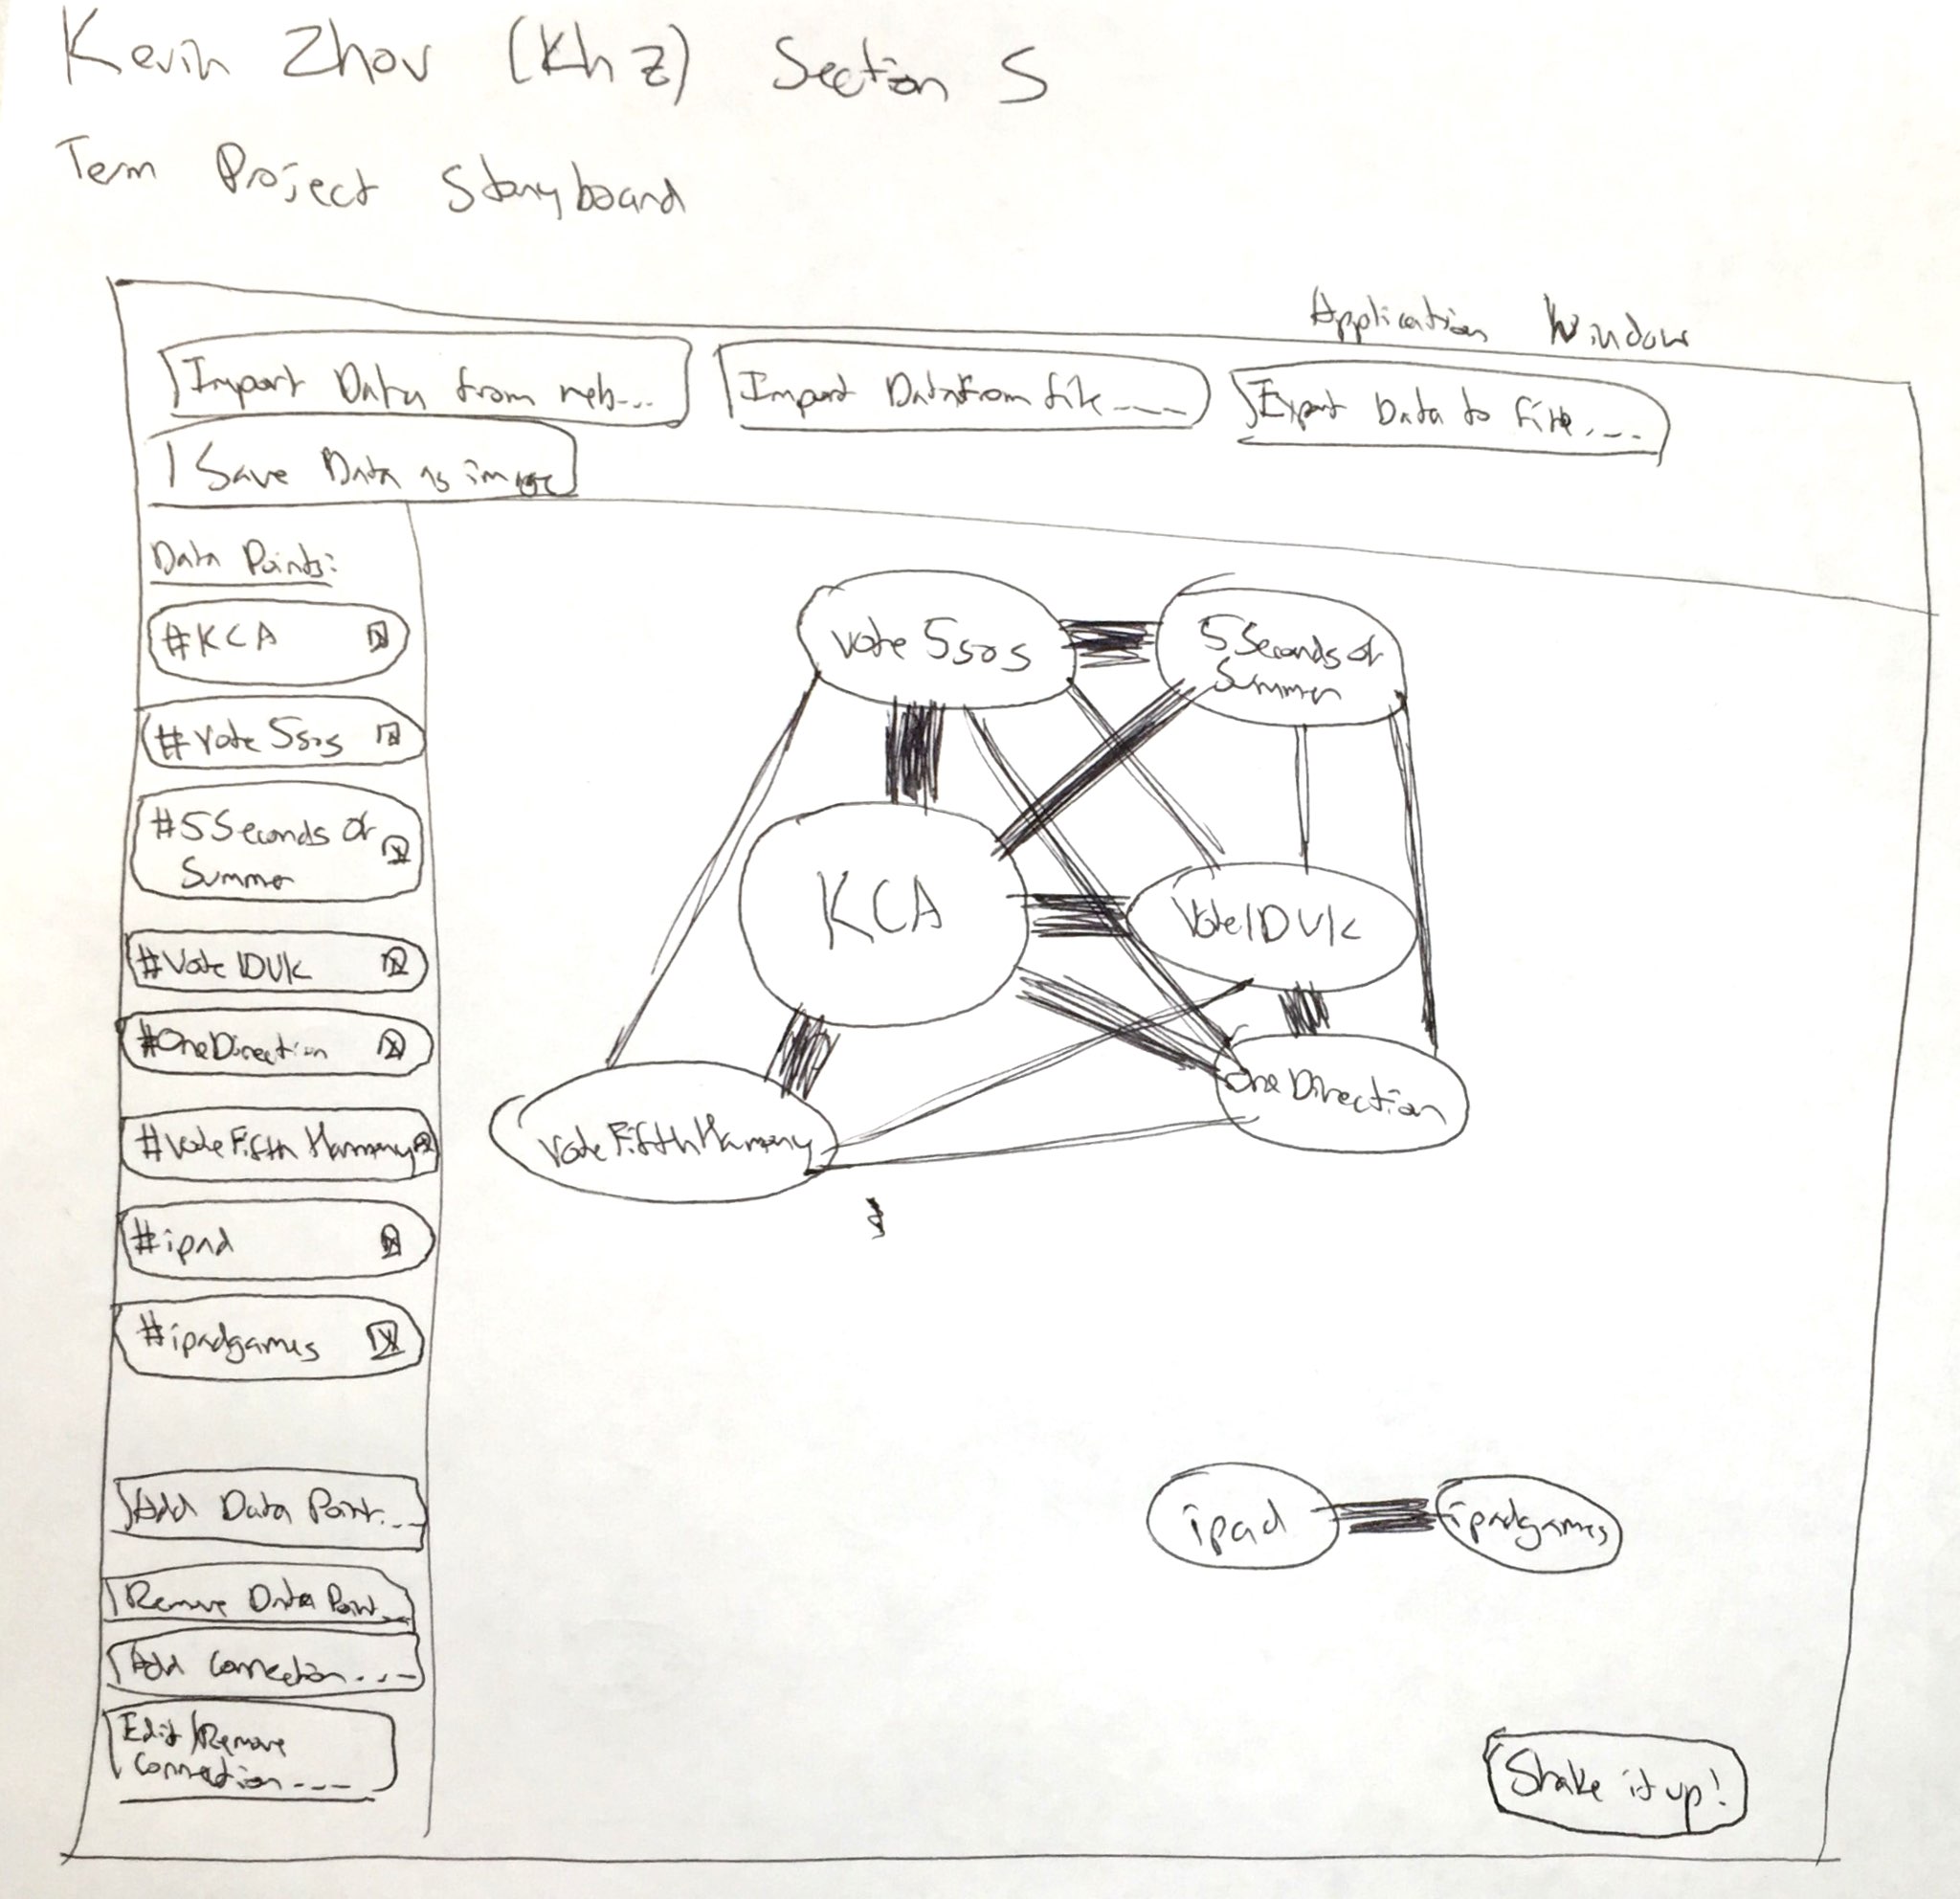 Kevin Zhou (khz) Section S
Term Project Storyboard
Application Window
Import Data from web...
Import Data from file...
Export Data to file...
Save Data as image
Data Points:
#KCA
#Vote5sos
#5SecondsOf
Summer
#Vote1DUK
#OneDirection
#VoteFifthHarmony
#ipad
#ipadgames
Add Data Point...
Remove Data Point...
Add Connection...
Edit/Remove
Connection...
Vote5sos
5SecondsOf
Summer
KCA
Vote1DUK
VoteFifthHarmony
OneDirection
ipad
ipadgames
Shake it up!